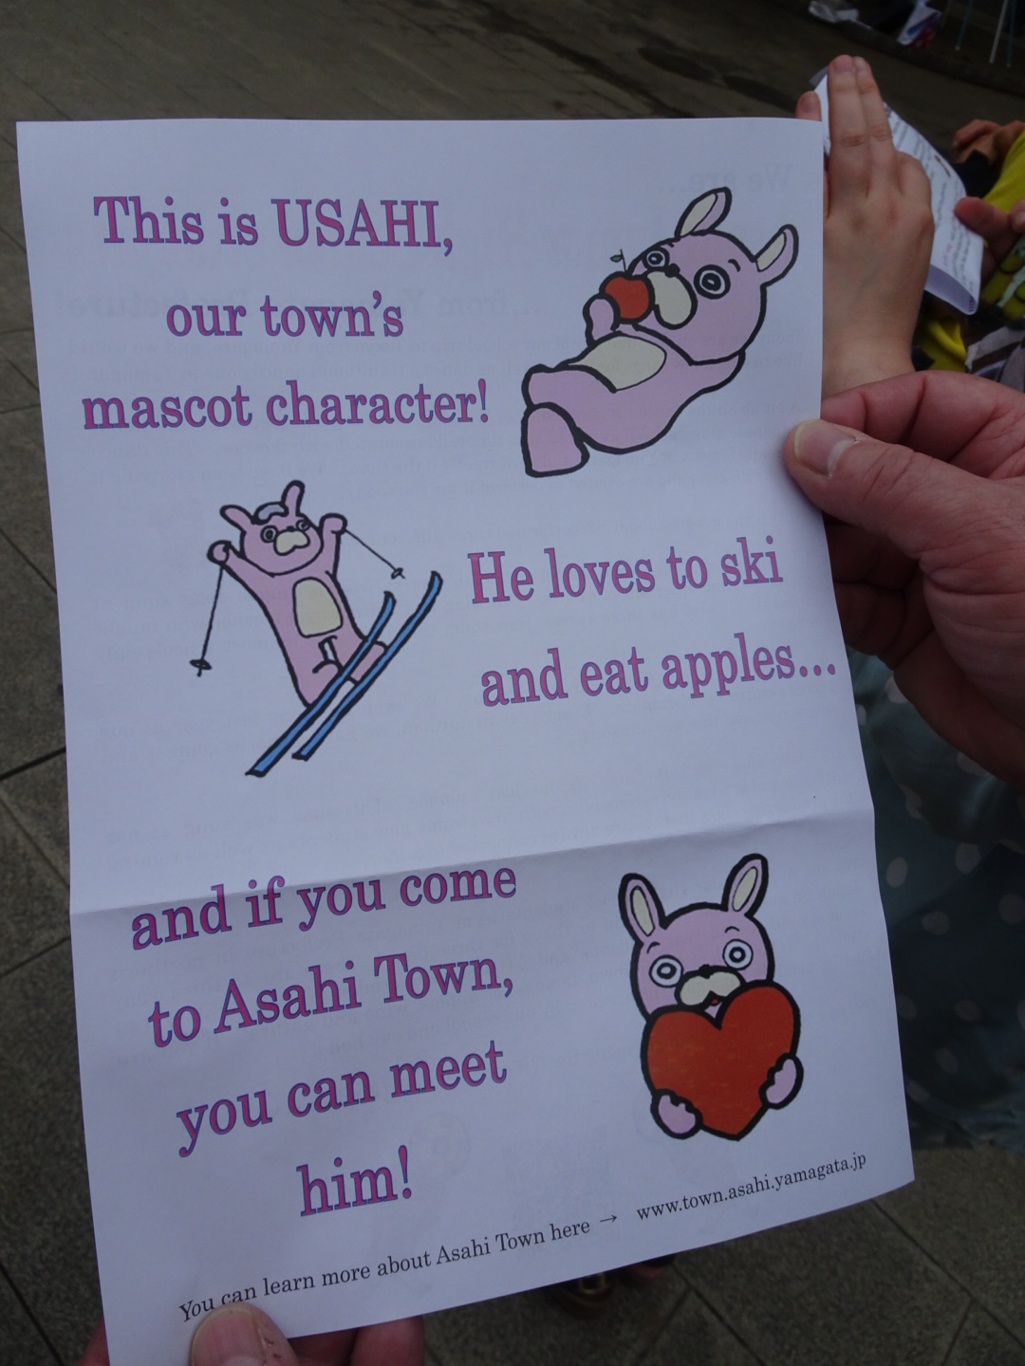 This is USAHI,
our town's
mascot character!
He loves to ski
and eat apples...
and if you come
to Asahi Town,
you can meet
him!
You can learn more about Asahi Town here → www.town.asahi.yamagata.jp